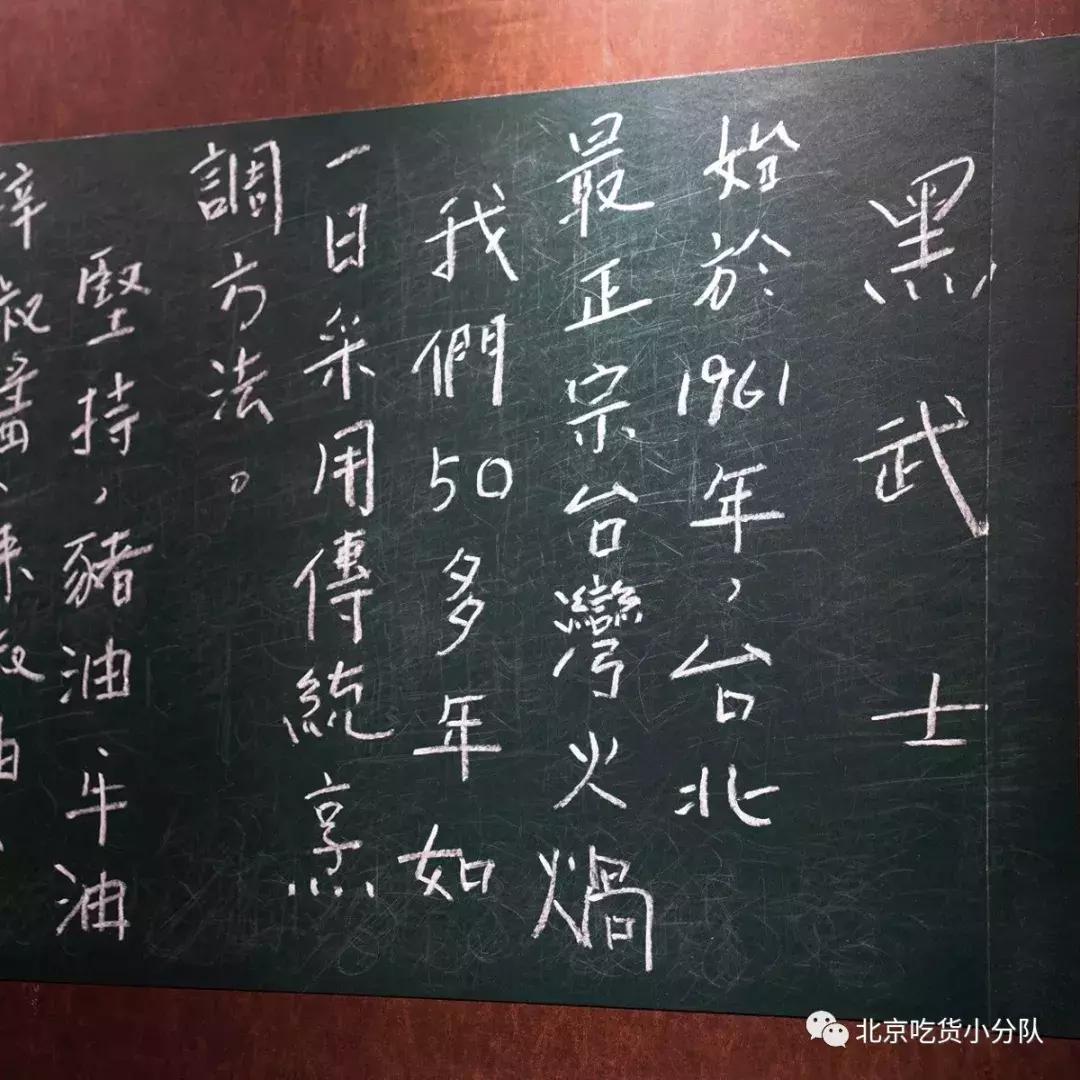 黑武士
始於1961年，台北
最正宗台灣火煱
我們50多年如
一日采用傳統烹
調方法。
堅持，豬油、牛油
北京吃货小分队